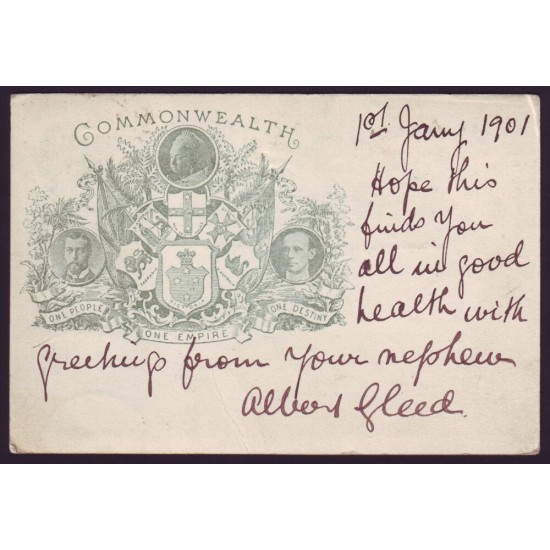 COMMONWEALTH
1st Jany 1901
Hope this
finds you
all in good
health with
greetings from your nephew
Albert Gleed.
ONE PEOPLE
ONE EMPIRE
ONE DESTINY
VICTORIA